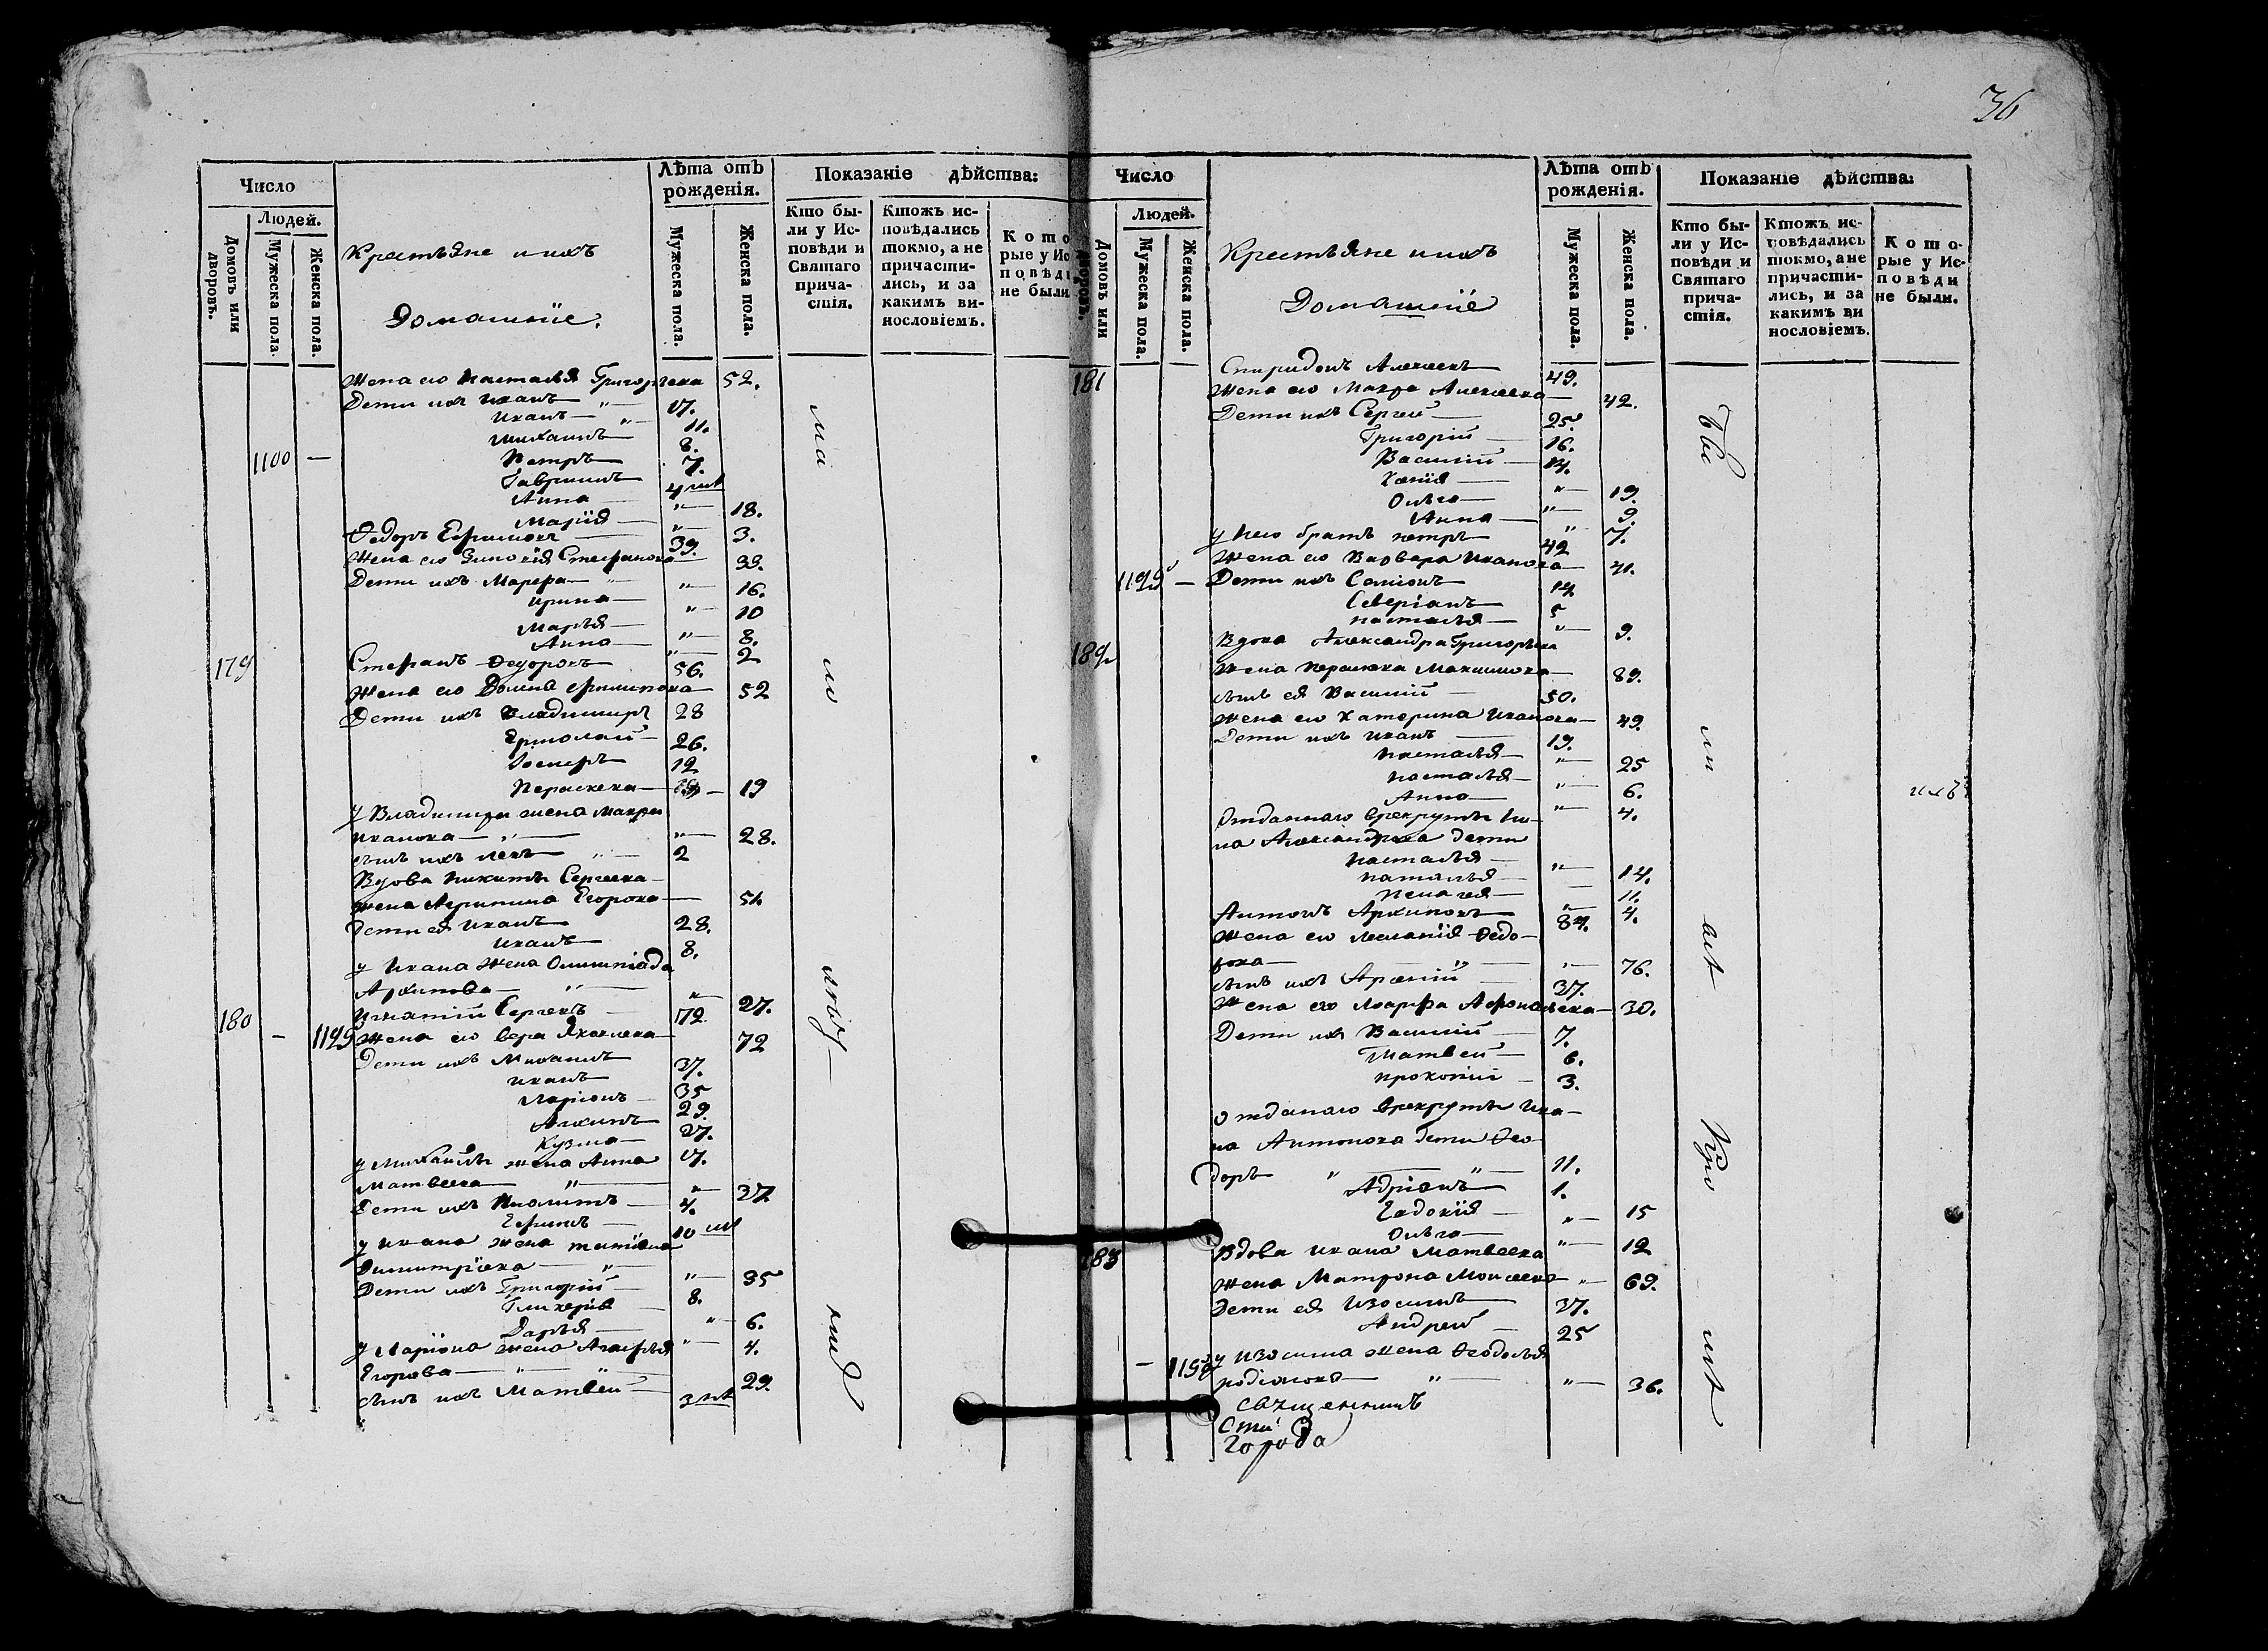 36
Число
Людей.
Домовъ или дворовъ.
Мужеска пола.
Женска пола.
Крестьяне и ихъ
Домашніе.
Лѣта отъ рожденія.
Мужеска пола.
Женска пола.
Показаніе дѣйства:
Кто бы-
ли у Ис-
повѣди и
Святаго
прича-
стія.
Ктожъ ис-
повѣдались
токмо, а не
причасти-
лись, и за
какимъ ви-
нословіемъ.
Кото
рые у Ис
повѣди
не были
Жена его Настасья Григорьева 52.
Дети ихъ Иванъ 17.
Иванъ 11.
Михаилъ 8.
1100 — Петръ 7.
Гавриилъ 4
Анна " 18.
Марія " 3.
Федоръ Ефимовъ 39.
Жена его Зиновія Стефанова 39.
Дети ихъ Марфа " 16.
Ирина " 10
Марья " 8.
Анна " 2
179 Стефанъ Федоровъ 56.
Жена его Домна Филипова 52
Дети ихъ Владимиръ 28
Ермолай 26.
Іосифъ 12
Параскева 19
У Владимира жена Мавра
Иванова " 28.
сынъ ихъ Левъ 2
Вдова Никиты Сергеева
жена Агрипина Егорова 51.
Дети ея Иванъ 28.
Иванъ 8.
у Ивана жена Олимпіада
Архипова " 27.
180 Игнатій Сергевъ 72
— 1129 Жена его Вера Яковлева 72
Дети ихъ Михаилъ 37.
Иванъ 35
Ларіонъ 29.
Акимъ 27.
Кузма 17.
у Михайлы жена Анна
Матвеева " 37
Дети ихъ Иполитъ 4.
Ефимъ 10
у Ивана жена Татіана
Димитріева " 35
Дети ихъ Григорій 8.
Гликерія " 6.
Дарья " 4.
у Ларіона жена Агафья
Егорова 29.
сынъ ихъ Матвей 3
Число
Людей.
Домовъ или дворовъ.
Мужеска пола.
Женска пола.
Крестьяне и ихъ
Домашніе
Лѣта отъ рожденія.
Мужеска пола.
Женска пола.
Показаніе дѣйства:
Кто бы-
ли у Ис-
повѣди и
Святаго
прича-
стія.
Ктожъ ис-
повѣдались
токмо, а не
причасти-
лись, и за
какимъ ви
нословіемъ.
Кото-
рые у Ис-
повѣди
не были.
181 Спиридонъ Алексеевъ 49.
Жена его Мавра Алексеева 42.
Дети ихъ Сергей 25.
Григорій 16.
Василій 14.
" 19.
Ольга " 9.
Анна " 7.
у него братъ Петръ 42
Жена его Варвара Иванова 41.
Дети ихъ Семіонъ 14
Северіанъ 5
Настасья " 9.
182 Вдова Александра Григорьева
Жена Параскева Максимова 89.
сынъ ея Василій 50.
Жена его Катерина Иванова 49.
Дети ихъ Иванъ 19.
Настасья " 25
Настасья " 6.
Анна " 4.
Отданнаго врекруты
Александрова дети
Настасья " 14.
Наталья 11.
Пелагея " 4.
Антонъ Архиповъ 84.
Жена его Меланія Федо-
рова " 76.
сынъ ихъ Арсеній 37.
Жена его Марфа Афонасьева 30.
Дети ихъ Василій 7.
Матвей 6.
Прокопій 3.
Отданаго врекруты Ива-
на Антонова дети Фео-
доръ 11.
Адріанъ 1.
Евдокія " 15
Ольга " 12
183 Вдова Ивана Матвеева
Жена Матрона Моисеева " 69.
Дети ея Изосимъ 37.
Андрей 25
у Изосима жена Феодосья
Родіонова " 36.
Священникъ
Города